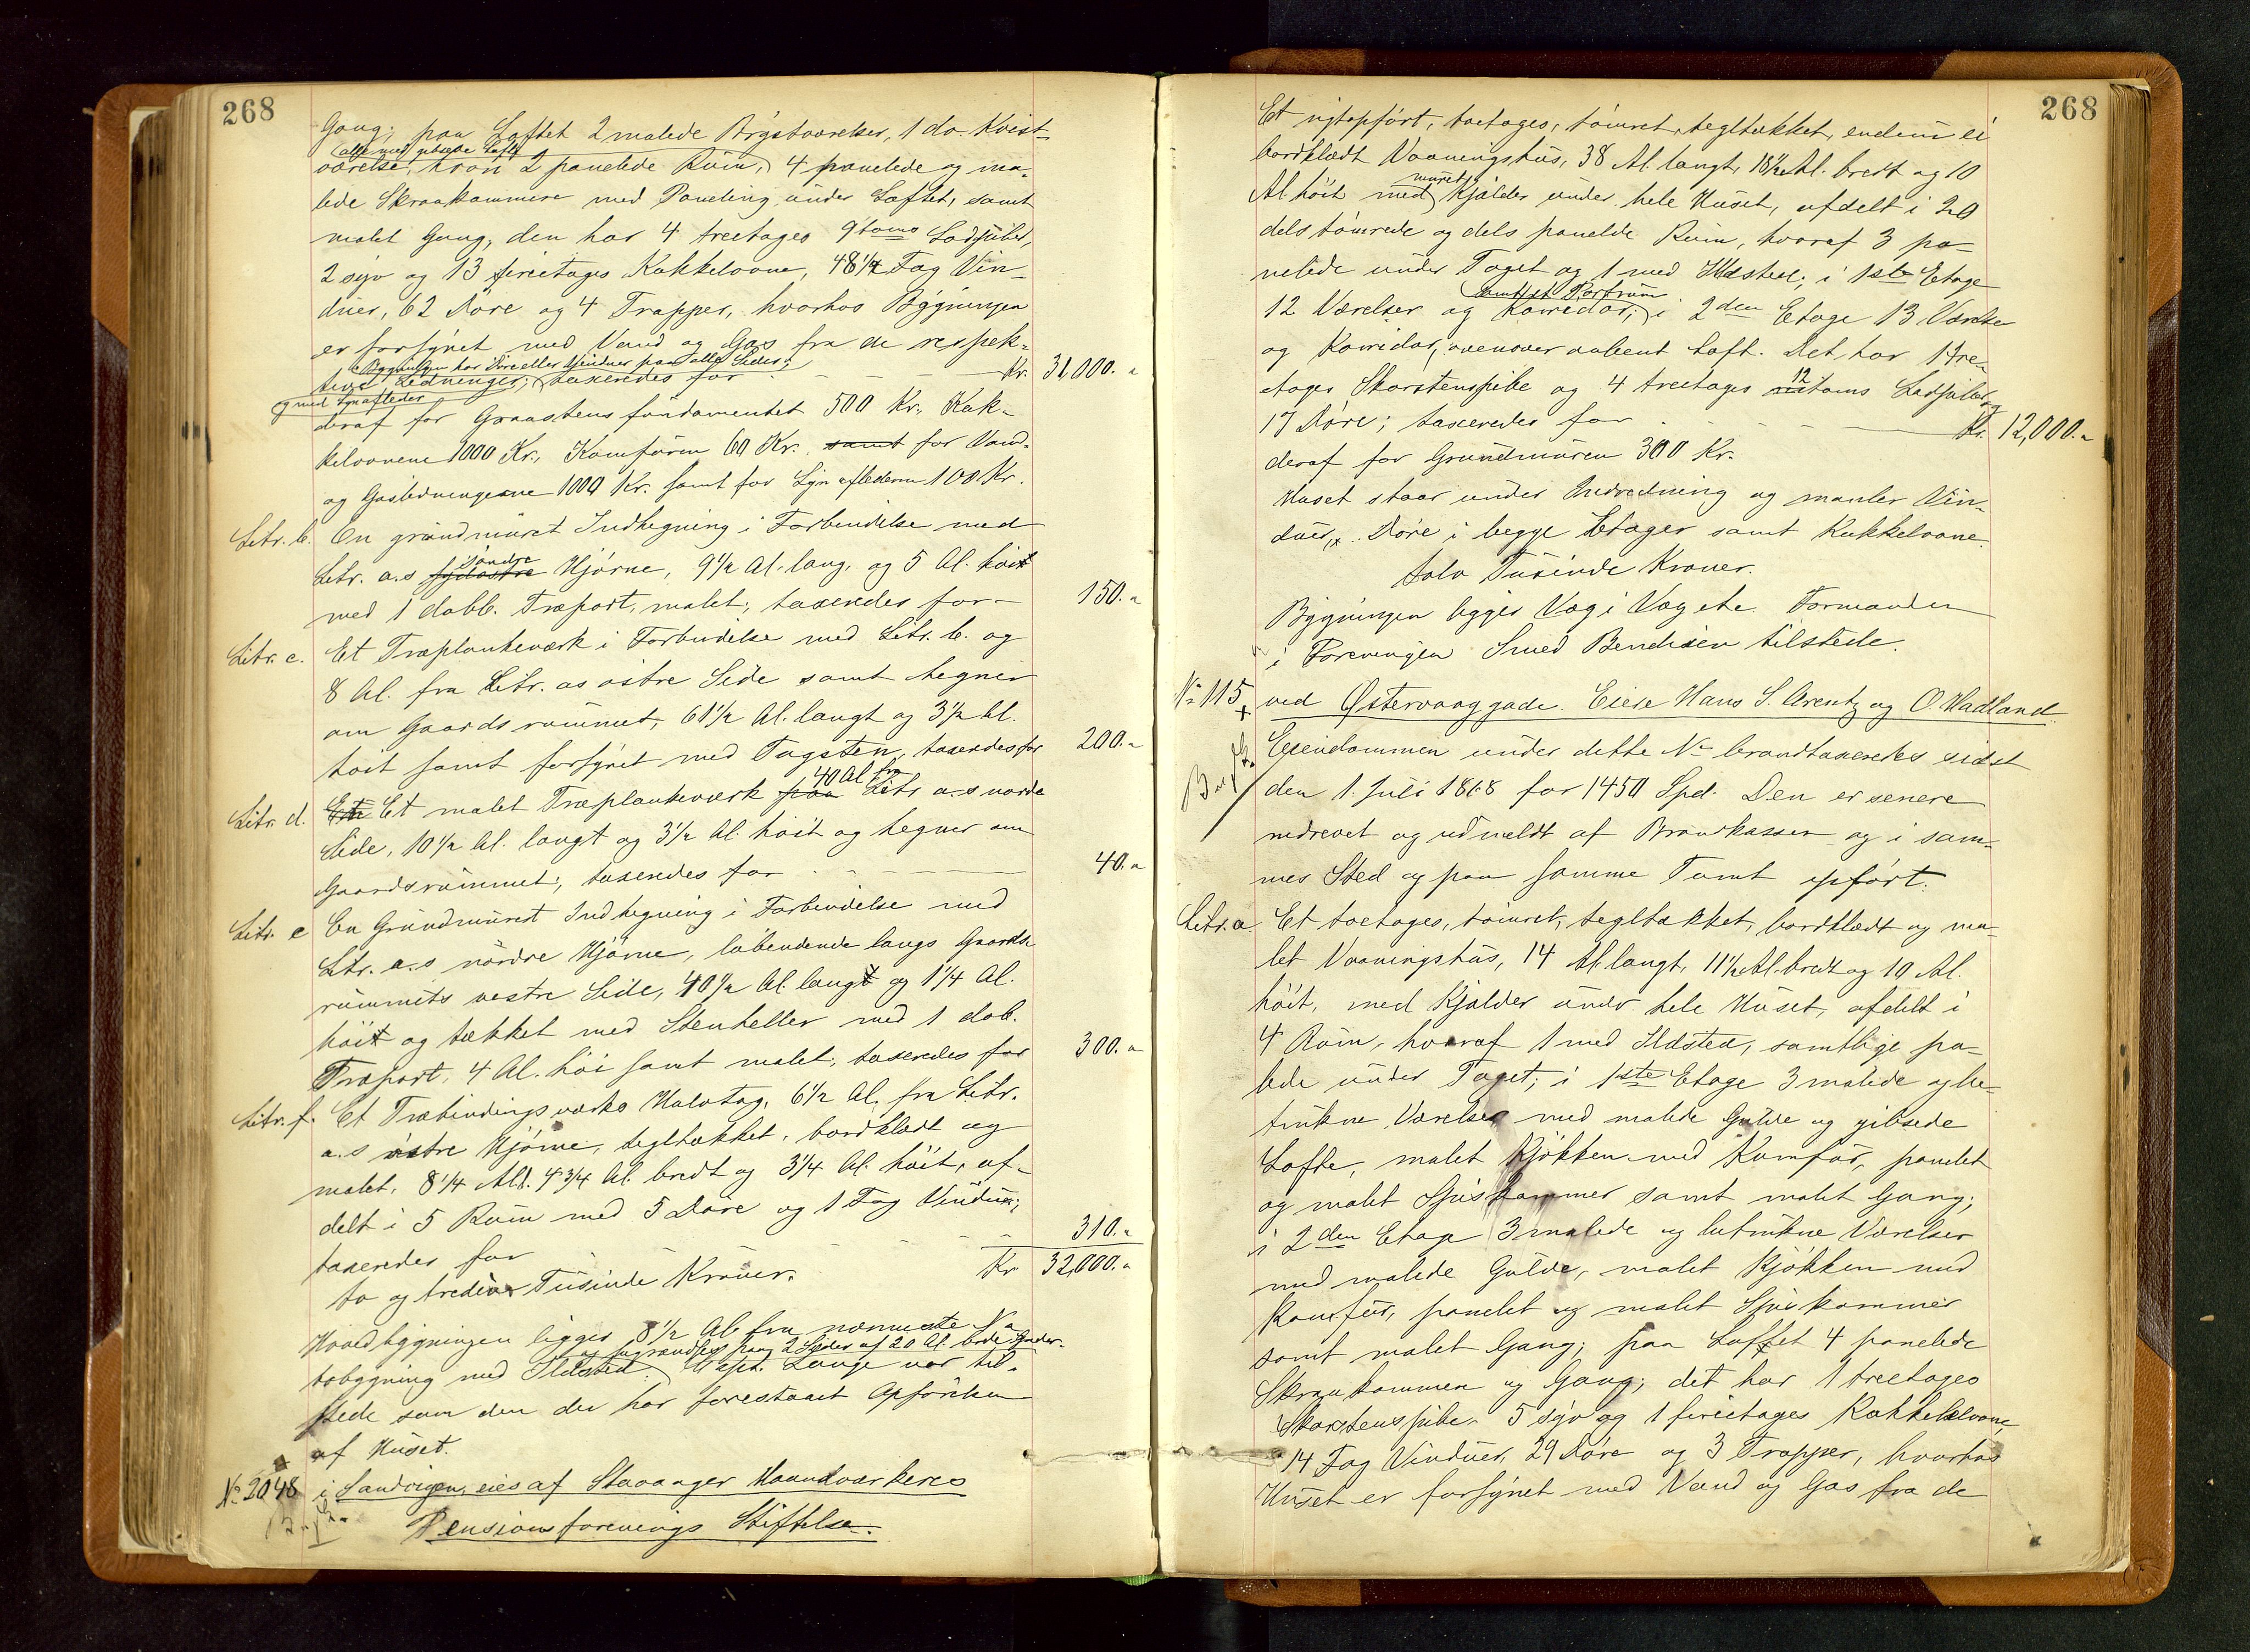 268
Gang; paa Loftet 2 malede Brystværelser, 1 do. Kvist-
alle med gibsede Lofte
værelse, hvori 2 panelede Rüm, 4 panelede og ma-
lede Skraakammere med Paneling ünder Loftet, samt
malet Gang, den har 4 treetages 9 toms Lodpiber,
2 syv og 13 fireetages Kakkelovne, 48 1/4 Fag Vin-
düer, 62 Döre og 4 Trapper, hvorhos Bygningen
er forsÿnet med Vand og Gas fra de respek-
Bygningen har Döre eller Vindüer paa alle Sider,
tive Ledninger, taxeredes for - - - Kr. 31,000.
og med Lynafleder
deraf for Graastensfündamentet 500 Kr., Kak-
kelovnene 1000 Kr., Komfüren 60 Kr. samt for Vand-
og Gasledningerne 1000 Kr. samt for Lynaflederen 100 Kr.
Litr. b. En gründmüret Indhegning i Forbindelse med
söndre
Litr. a.s sydostre Hjörne, 9 1/2 Al. lang, og 5 Al. höit
med 1 dobb. Træport, malet, taxeredes for - 150.
Litr. c. Et Træplankeværk i Forbindelse med Litr. b. og
8 Al. fra Litr. as östre Side samt hegner
om Gaardsrümmet, 61 1/2 Al. langt og 3 1/2 Al.
höit samt forsÿnet med Tagsten, taxeredes for 200.
40 Al. fra
Litr. d. Et Et malet Træplankeværk paa Litr a.s nordre
Side, 10 1/2 Al. langt og 3 1/2 Al. höit og hegner om
Gaardsrümmet, taxeredes for - - - 40.
Litr. e En Gründmüret Indhegning i Forbindelse med
Litr. a.s nordre Hjörne, löbendende langs Gaards-
rümmets vestre Side, 40 1/2 Al. langt og 1 1/4 Al.
höit og tækket med Stenheller med 1 dob.
Træport, 4 Al. höi samt malet, taxeredes for 300.
Litr. f. Et Træbindingsværks Halvtag, 6 1/2 Al. fra Litr.
a.s östre Hjörne, tegltækket, bordklædt og
malet, 8 1/4 Al. l. 4 3/4 Al. bredt og 3 1/4 Al. höit, af-
delt i 5 Rüm med 5 Döre og 1 Fag Vindüer,
taxeredes for - - - 310.
to og tredive Tüsinde Kroner. Kr 32,000.
Hovedbygningen ligger 8 1/2 Al. fra nærmeste Na-
og begrændses paa 2 Sider af 20 Al. brede Gader.
bobygning med Ildsted. Capt. Lange var til-
stede som den der har forestaaet Opförelsen
af Hüset.
No 2048 i Sandvigen, eies af Stavanger Haandværkeres
Pensionsforenings Stiftelse.
268
Et nÿtopfört, toetages, tömret, tegltækket, endnü ei
bordklædt Vaaningshüs, 38 Al. langt, 18 1/2 Al. bredt og 10
müret
Al. höit med Kjælder ünder hele Hüset, afdelt i 20
dels tömrede og dels panelde Rüm, hvoraf 3 pa-
nelede ünder Taget og 1 med Ildsted; i 1ste Etage
samt et Portrüm
12 Værelser og Korridor, i 2den Etage 13 Værelser
og Korridor, ovenover aabent Loft. Det har 1 tre-
12
etages Skorstenspibe og 4 treetages toms Lodpiber og
17 Döre; taxeredes for - - - Kr. 12,000.
deraf for Gründmüren 300 Kr.
Hüset staar ünder Indredning og mangler Vin-
düer, Döre i begge Etager samt Kakkelovne.
tolv Tüsinde Kroner.
Bÿgningen ligger Væg i Væg etc. Formanden
i Foreningen Smed Bendixen tilstede.
No 115 ved Østervaaggade. Eiere Hans S. Arentz og O. Hadland.
Eiendommen ünder dette No brandtaxeredes sidst
den 1. Juli 1868 for 1450 Spd. Den er senere
nedrevet og üdmeldt af Brandkassen og i sam-
mes Sted og paa samme Tomt opfört.
Litr. a Et toetages, tömret, tegltækket, bordklædt og ma-
let Vaaningshüs, 14 Al. langt, 11 1/2 Al. bredt og 10 Al.
höit, med Kjælder ünder hele Hüset, afdelt i
4 Rüm, hvoraf 1 med Ildsted, samtlige pa-
lede ünder Taget; i 1ste Etage 3 malede og be-
trükne Værelser med malede Gülve og gibsede
Lofte, malet Kjökken med Komfür, panelet
og malet Spiskammer samt malet Gang;
i 2den Etage 3 malede og betrükne Værelser
med malede Gülve, malet Kjökken med
Komfür, panelet og malet Spiskammer
samt malet Gang; paa Loftet 4 panelede
Skraakammere og Gang; det har 1 treetages
Skorstenspibe, 5 syv og 1 fireetages Kakkelovne,
14 Fag Vindüer, 29 Döre og 3 Trapper, hvorhos
Hüset er forsÿnet med Vand og Gas fra de